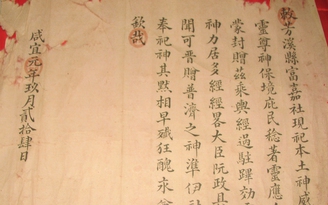 敕芳溪縣富嘉社現祀本土神威
靈尊神保境庇民稔著靈應
蒙封贈茲乘輿經過駐蹕効
神力居多經經略大臣阮政具
聞可晉贈普濟之神準伊社
奉祀神其默相早殲狂醜永
欽哉
咸宜元年玖月貳拾肆日